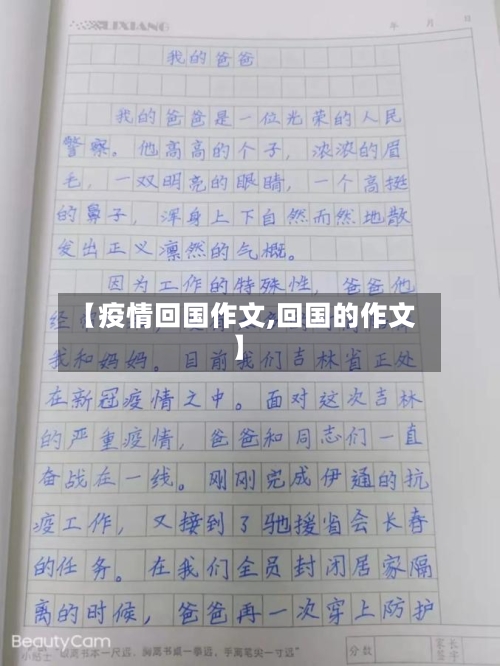 LIXIANG
年 月 日
我的爸爸
我的爸爸是一位光荣的人民
警察。他高高的个子，浓浓的眉
毛，一双明亮的眼睛，一个高挺
的鼻子，浑身上下自然而然地散
发出正义凛然的气概。
因为工作的特殊性，爸爸他
经
【疫情回国作文,回国的作文
】
我和妈妈。目前我们吉林省正处
在新冠疫情之中。面对这次吉林
的严重疫情，爸爸和同志们一直
奋战在一线。刚刚完成伊通的抗
疫工作，又接到了驰援省会长春
的任务。在我们全员封闭居家隔
离的时候，爸爸再一次穿上防护
小贴士 眼离书本一尺远，胸离书桌一拳远，手离笔尖一寸远
分数
家长
签字
BeautyCam